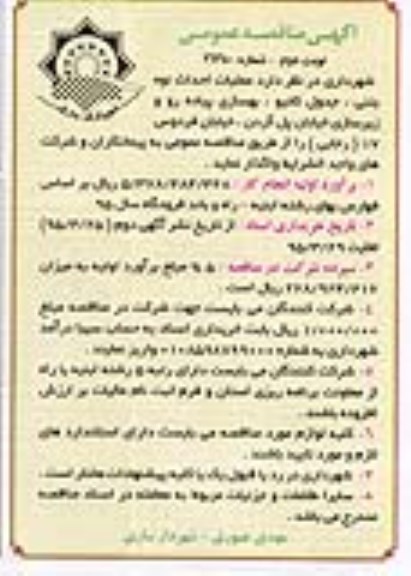 آگهی مناقصه عمومی
نوبت دوم - شماره
شهرداری در نظر دارد عملیات احداث
، جدول ، بهسازی پیاده رو و
زیرسازی خیابان پل گردن ، خیابان فردوس
۱۷ ( رجایی ) را از طریق مناقصه عمومی به پیمانکاران و شرکت
های واجد الشرایط واگذار نماید .
۱- برآورد اولیه انجام کار : ریال بر اساس
فهارس بهای رشته ابنیه - راه و باند فرودگاه سال ۹۵
۲- تاریخ خریداری اسناد : از تاریخ نشر آگهی دوم ( ۹۵/۳/۲۵ )
لغایت ۹۵/۳/۲۹
۳- سپرده شرکت در مناقصه : ۵ % مبلغ برآورد اولیه به میزان
ریال است .
۴- شرکت کنندگان می بایست جهت شرکت در مناقصه مبلغ
ریال بابت خریداری اسناد به حساب سیبا درآمد
شهرداری به شماره واریز نمایند .
۵- شرکت کنندگان می بایست دارای رتبه ۵ رشته ابنیه یا راه
از معاونت برنامه ریزی استان و فرم ثبت نام مالیات بر ارزش
افزوده باشند .
۶- کلیه لوازم مورد مناقصه می بایست دارای استاندارد های
لازم و مورد تایید باشند .
۷- شهرداری در رد یا قبول یک یا کلیه پیشنهادات مختار است .
۸- سایر اطلاعات و جزئیات مربوط به معامله در اسناد مناقصه
مندرج می باشد .
مهدی - شهردار ساری